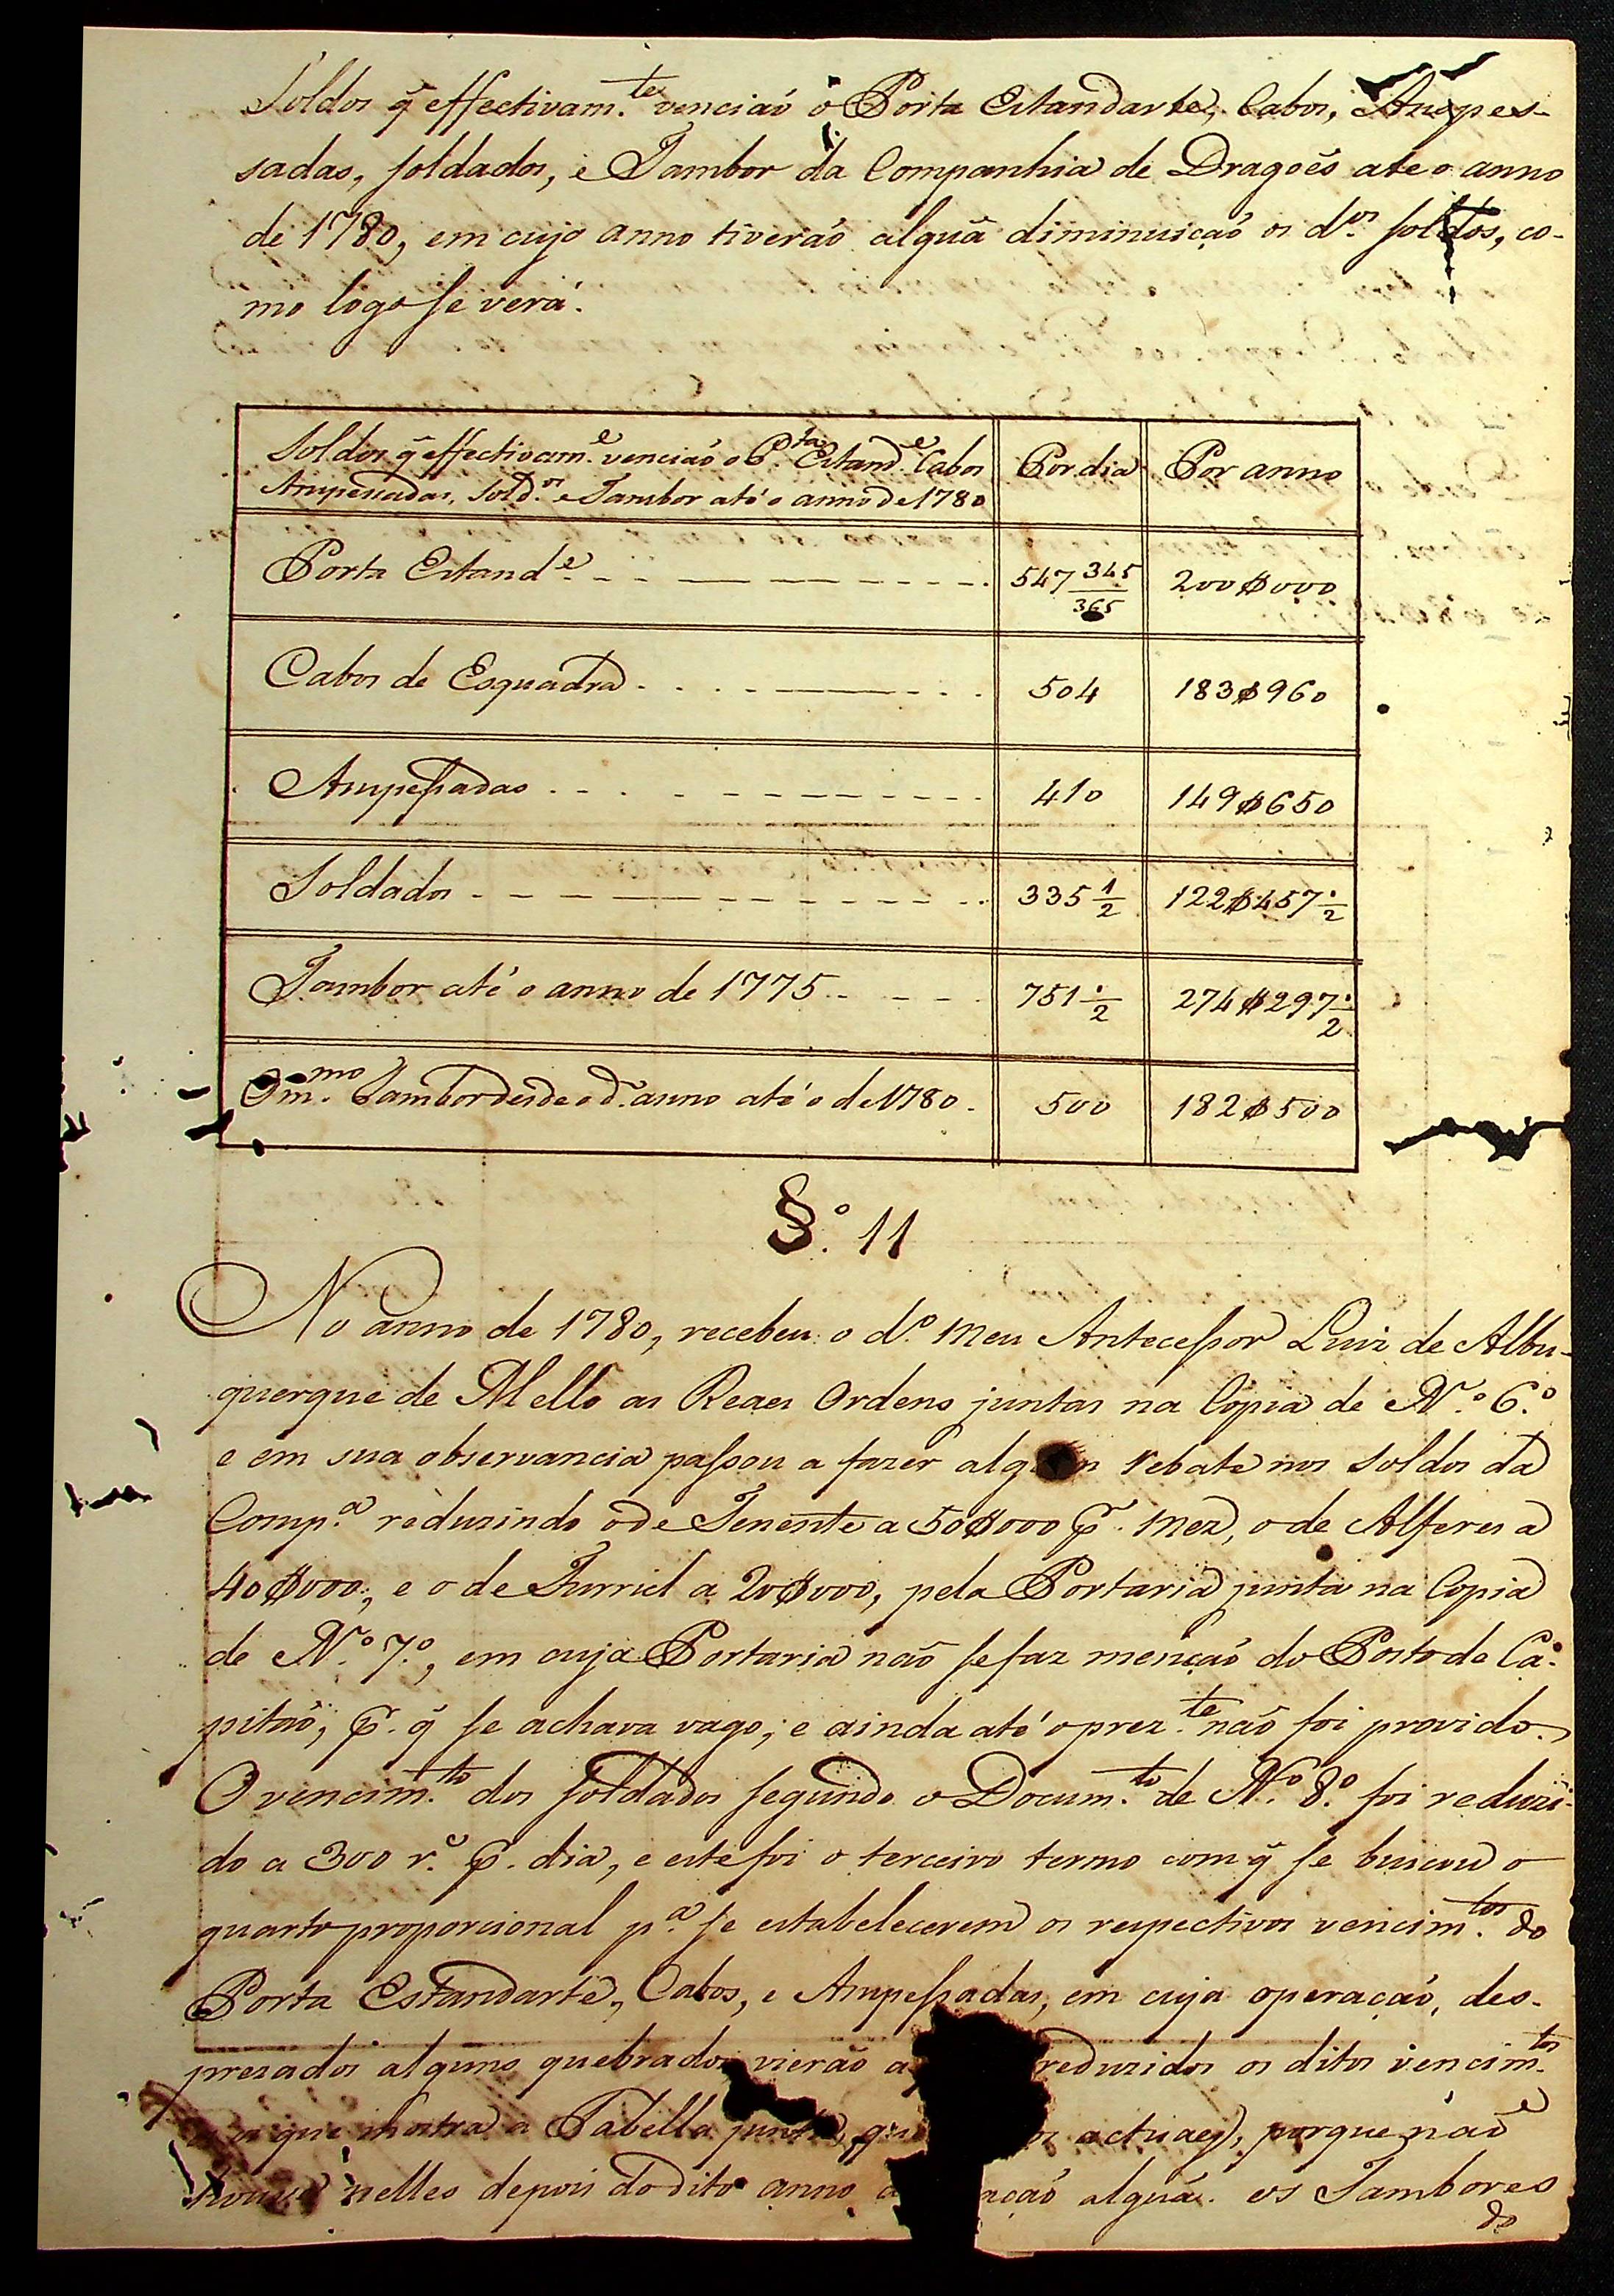 Soldos q̃ effectivam.te venciaõ o Porta Estandarte, Cabos, Anspes-
sadas, soldados, e Tambor da Companhia de Dragoẽs ate o anno
de 1780, em cujo anno tiveraõ alguã diminuiçaõ os d.os soldos, co-
mo logo se verá.
Soldos q̃ effectivam.e venciaõ o P.ta Estand.e Cabos
Anspessadas, Sold.os e Tambor até o anno de 1780
Por dia
Por anno
Porta Estand.e
547 345/365
200$000
Cabos de Esquadra
504
183$960
Anspessadas
410
149$650
Soldados
335 1/2
122$457 1/2
Tambor até o anno de 1775
751 1/2
274$297 1/2
O m.mo Tambor desde o d.o anno até o de 1780
500
182$500
§.º 11
No anno de 1780, recebeu o d.º meu Antecessor Luiz de Albu-
querque de Mello as Reaes Ordens juntas na Copia de N.º 6.º
e em sua observancia passou a fazer alg rebate nos soldos da
Comp.a reduzindo o de Tenente a 50$000 p.r mez, o de Alferes a
40$000, e o de Furriel a 20$000, pela Portaria junta na Copia
de N.º 7.º, em cuja Portaria naõ se faz mençaõ do Posto de Ca-
pitaõ, p.r q̃ se achava vago; e ainda até o prez.te naõ foi provido.
O vencim.to dos soldados segundo o Docum.to de N.º 8.º foi reduzi-
do a 300 r.s p.r dia, e este foi o terceiro termo com q̃ se buscou o
quarto proporcional p.a se estabelecerem os respectivos vencim.tos do
Porta Estandarte, Cabos, e Anspessadas, em cuja operaçaõ, des-
prezados alguns quebrados vieraõ a reduzidos os ditos vencim.tos
que mostra a Tabella junta, actuaes, porque naõ
houve nelles depois do dito anno alguã. os Tambores
do